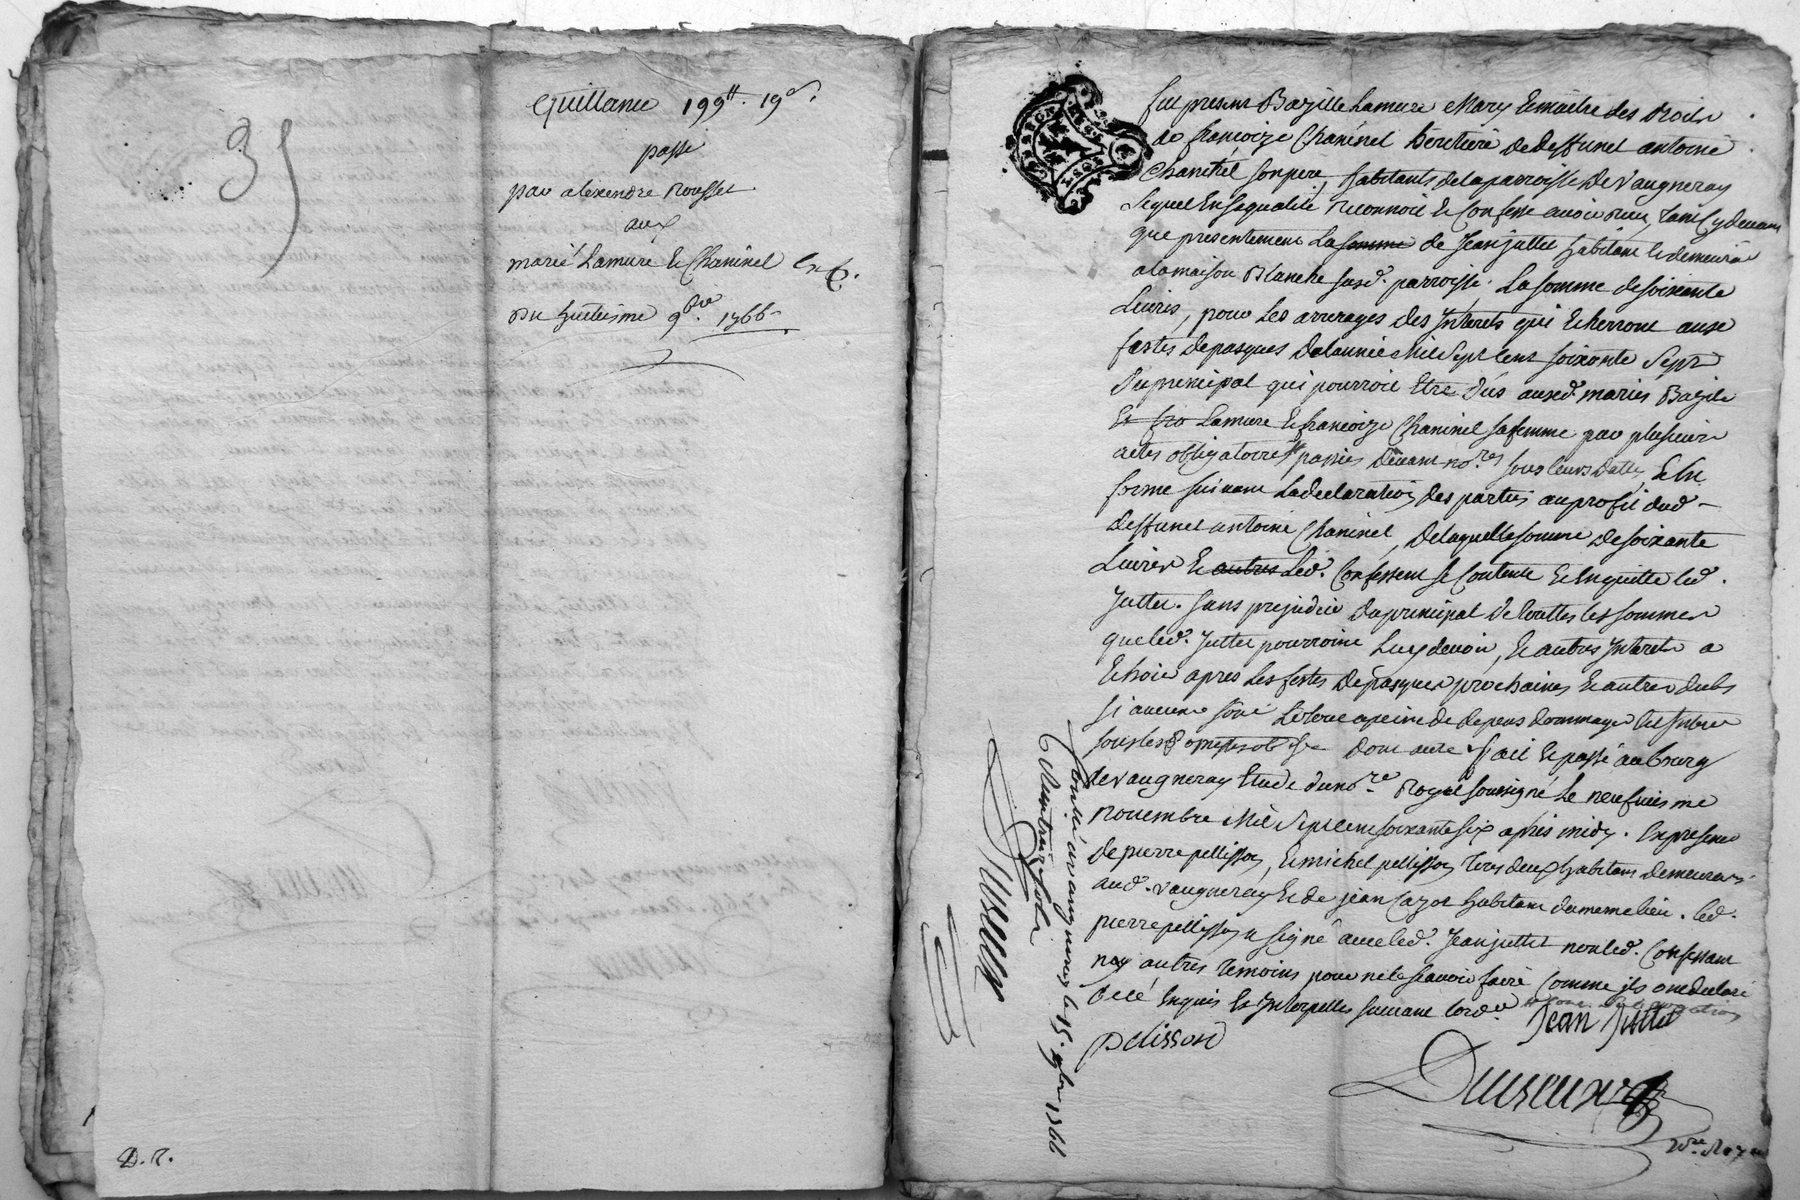 35
Quittance 199tt. 19s.
passé
par alexendre Rousset
aux
mariés Lamure & Chaninel
Du huitiesme 9bre. 1766
D. R.
fut present Bazille Lamure Mary & maitre des droits
de francoize Chaninel héritiere de deffunct antoine
Chaninel son pere, habitants de la parroisse de Vaugneray
Lequel en sa qualité reconnoit & Confesse avoir reçu, tant Cy devant
que presentement La somme de Jean juttet habitant & demeurant
a la maison Blanche susd. parroisse. La somme de soixante
Livres, pour les arrerages des Interets qui Echerront aux
festes de pasques de lannée Mil Sept Cent soixante Sept
du principal qui pourroit Etre dus auxd. mariés Bazile
Et fra Lamure & francoize Chaninel sa femme par plusieurs
actes obligatoires passés devant nores sous leurs datte, & En
forme suivant la declaration des parties au profit dud
deffunct antoine Chaninel, de laquelle somme de soixante
Livres & autres Led. Confessent se Contente & En quitte led.
Juttet. sans prejudice du principal de touttes les sommes
que led. Juttet pourroint Luy devoir, & autres Interets a
Echoir apres les festes de pasques prochaines & autres dubs
si aucuns sont a peine de depens dommages
Dont acte fait & passé au bourg
de Vaugneray Etude du nore Royal soussigné Le neufvieme
novembre Mil Sept Cent soixante Six après midy. En presence
de pierre pellisson, & michel pellisson tous deux habitans demeurans
aud. Vaugneray & de jean Cazot habitant du meme lieu. led.
pierre pellisson a signé avec led. Jean juttet non led. Confessant
ny autres temoins pour ne le scavoir faire Comme ils ont declaré
de ce Enquis & Interpellés suivant lord.ce
Jean Juttet
Pelisson
nore Royal
Controllé a vaugneray le 15. 9bre 1766